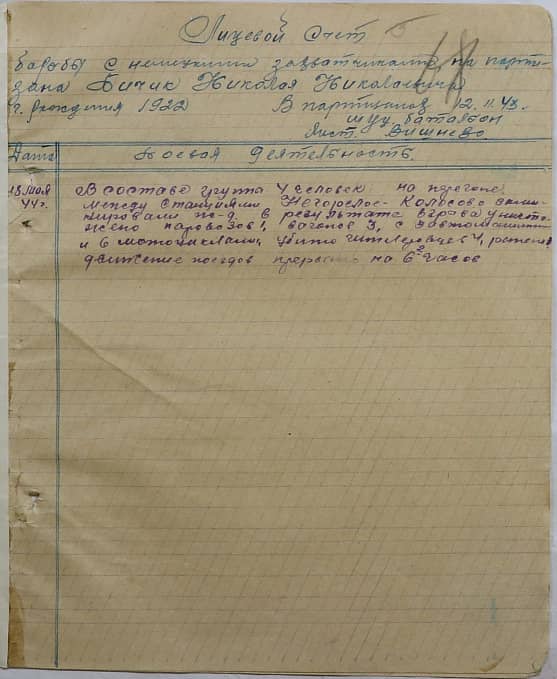 Лицевой Счет
борьбы с немецкими захватчиками на парти-
зана Бичик Николая Николаевича
г. рождения 1922 В партизанах 12.11.43.
батальон
Вишнево
Дата Боевая деятельность.
18 мая В составе группы 4 человек на перегоне
44 г. между станциями Негорелое-Колосово
ж-д. в результате взрыва уничто-
жено паровозов 1, вагонов 3, с автомашинами
и 6 мотоциклами, убито гитлеровцев 4, ранено
движение поездов прервано на 6 часов